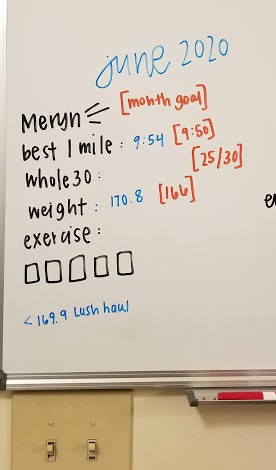 june 2020
Meryn [month goal]
best 1 mile : 9:54 [9:50]
whole30 : [25/30]
weight : 170.8 [166]
exercise :
< 169.9 Lush haul